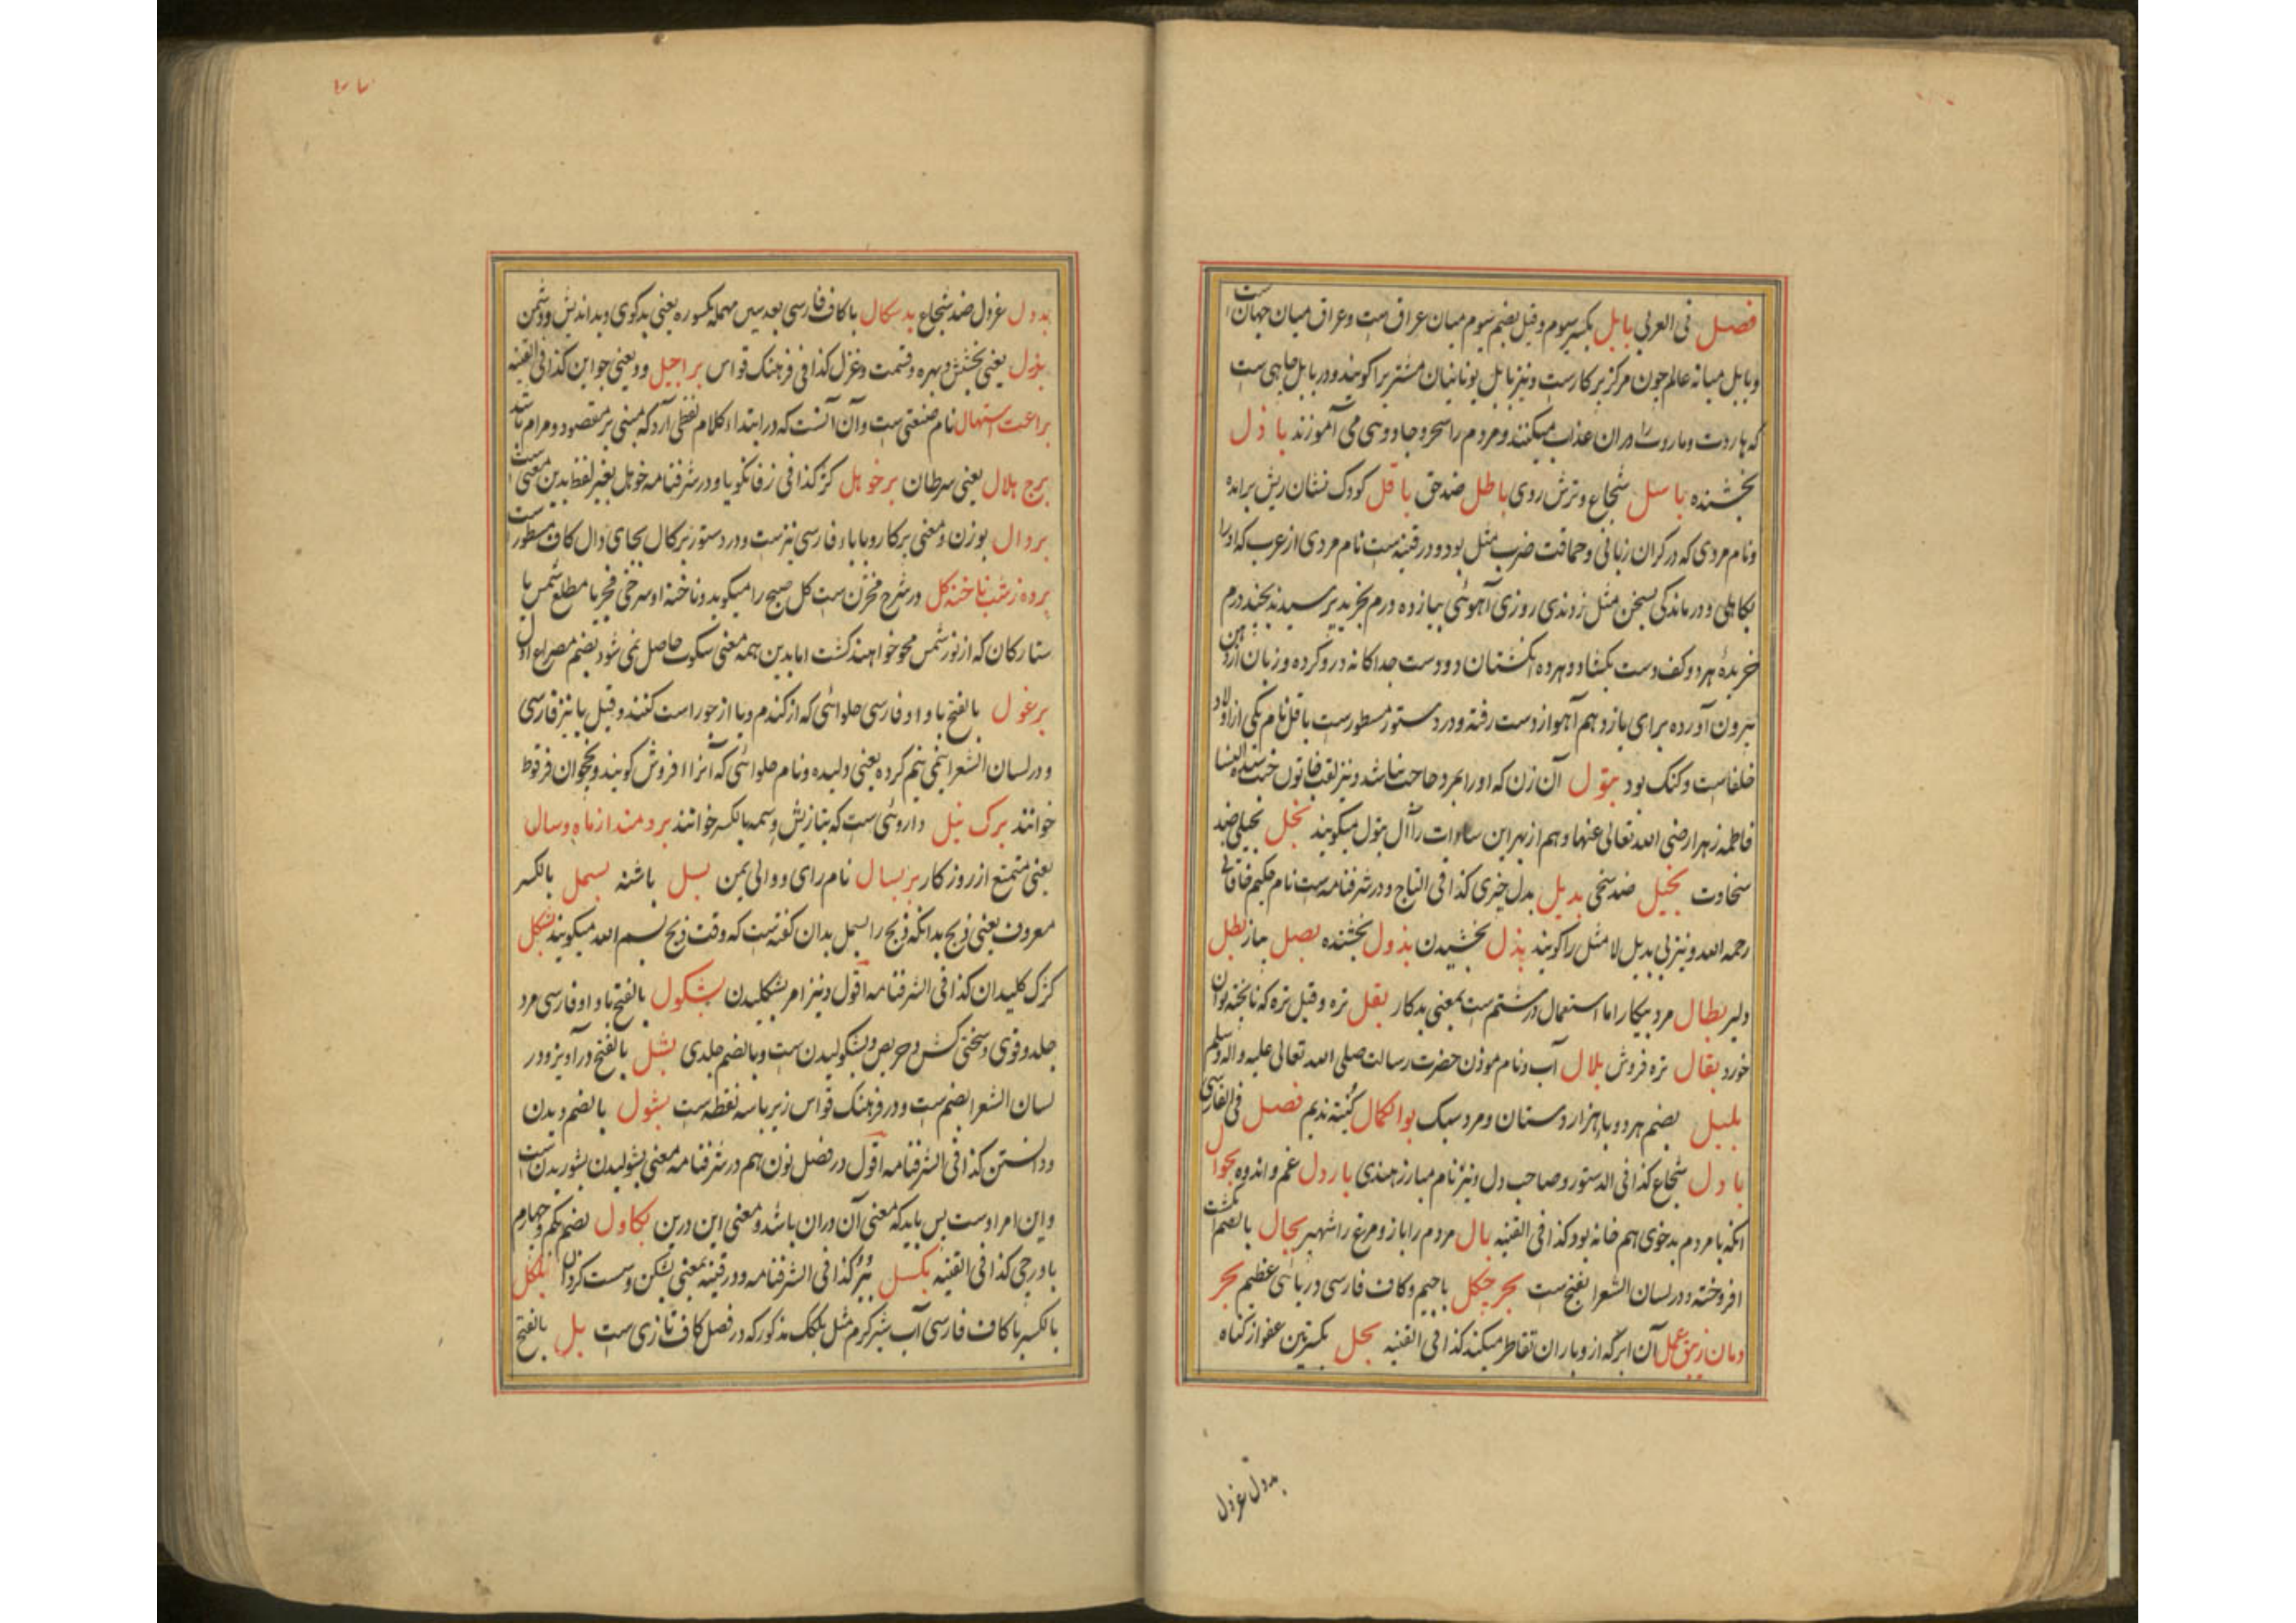 فصل فی العربی بابل بکسر سیوم و قیل بضم سیوم میان عراق ست و عراق میان جهان ست
و بابل میانه عالم چون مرکز پرکارست و نیز بابل یونانیان مشتری را کویند و در بابل چاهی ست
که هاروت و ماروت را دران عذاب میکنند و مردم را سحر و جادوی می آموزند باذل
بخشنده باسل شجاع و ترش روی باطل ضد حق باقل کودک نشان ریش برآمده
و نام مردی که در کران زبانی و حماقت ضرب مثل بود و در قنیه ست نام مردی از عرب که او را
بکاهلی و درماندکی بسخن مثل زدندی روزی آهوئی بیازده درم بخرید پرسیدند بچند درم
خریده هر دو کف دست بکشاد و هر ده انکشتان دو دست جداکانه در رو کرده و زبان از دهن
بیرون آورده برای یازدهم آهو از دست رفته و در دستور مسطورست باقل نام یکی از اولاد
خلفاست و کنک بود بتول آن زن که او را بمرد حاجت نباشد و نیز لقب خاتون جنت سیدة النسا
فاطمه زهرا رضی الله تعالی عنها و هم ازبهر این سادات را آل بتول میکویند بخل بخیلی ضد
سخاوت بخیل ضد سخی بدیل بدل چیزی کذا فی التاج و در شرفنامه ست نام حکیم خاقانی
رحمه الله و نیز بی بدیل لا مثل را کویند بذل بخشیدن بذول بخشنده بصل پیاز بطل
دلیر بطال مرد بیکار اما استعمال در شتم ست بمعنی بدکار بقل تره و قیل تره که ناپخته توان
خورد بقال تره فروش بلال آب و نام موذن حضرت رسالت صلی الله تعالی علیه و اله و سلم
بلبل بضم هر دو با هزار دستان و مرد سبک بوالکمال کنیته ندیم فصل فی الفارسی
بادل شجاع کذا فی الدستور و صاحب دل و نیز نام مبارز هندی باردل غم و اندوه بجوال
انکه با مردم بدخوی هم خانه بود کذا فی القنیه بال مردم را بازو و مرغ را شهپر بجال بالضم انکشت
افروخته و در لسان الشعرا بفتح ست بحر چکل باجیم و کاف فارسی دریائی عظیم بحر
دمان زیبق عمل آن ابر که ازو باران تقاطر میکند کذا فی القنیه بحل بکسرتین عفو از کناه
بددل غردل
بددل غردل ضد شجاع بدسکال با کاف فارسی بعد سین مهمله مکسوره یعنی بدکوی و بداندیش و دشمن
بذل یعنی بخشش و بهره و قسمت و غزل کذا فی فرهنک قواس براجیل و یعنی جو این کذا فی القنیه
براعت استهلال نام صنعتی ست و آن آنست که در ابتداء کلام لفظی آرد که مبنی بر مقصود و مرام باشد
برج هلال یعنی سرطان برخوهل کژ کذا فی زفانکویا و در شرفنامه خوهل بغیر لفظ بدین معنی ست
بردال بوزن و معنی پرکار و با باء فارسی نیزست و در دستور برکال بجای دال کاف مسطور ست
برده ز شب ناخنه کل در شرح مخزن ست کل صبح را میکوید و ناخنه او سرخی فجر یا مطلع شمس یا
ستارکان که از نور شمس محو خواهند کشت اما بدین همه معنی سکوت حاصل نمی شود بضم مصراع اول
برغول بالفتح با واو فارسی حلوائی که از کندم و یا از جو راست کنند و قیل با نیز فارسی
و در لسان الشعرا بنمی نیم کرده یعنی دلیده و نام حلوائی که آنرا افروش کویند و بخچوان فرقوط
خوانند برک نیل داروئی ست که بتازیش وسمه بالکسر خوانند برومند از ماه و سال
یعنی متمتع از روزکار بربسال نام رای و والی یمن بسل باشنه بسمل بالکسر
معروف یعنی ذبح بدانکه ذبح را بسمل بدان کفته ست که وقت ذبح بسم الله میکویند بشکل
کژک کلیدان کذا فی الشرفنامه اقول و نیز امر بشکلیدن بشکول بالفتح با واو فارسی مرد
جلد و قوی و سختی کش و حریص و بشکولیدن ست و بالضم جلدی بشل بالفتح درآویز و در
لسان الشعرا بضم ست و در فرهنک قواس زیر با سه نقطه ست بشول بالضم دیدن
و دانستن کذا فی الشرفنامه اقول در فصل نون هم در شرفنامه معنی بشولیدن بشوریدن ست
و این امر اوست پس باید که معنی آن دران باشد و معنی این درین بکاول بضم یکم و چهارم
باورجی کذا فی القنیه بکسل ببر کذا فی الشرفنامه و در قنیه بمعنی بشکن و سست کردان بلکل
بالکسر با کاف فارسی آب شیر کرم مثل بلکک مذکور که در فصل کاف تازی ست بل بالفتح